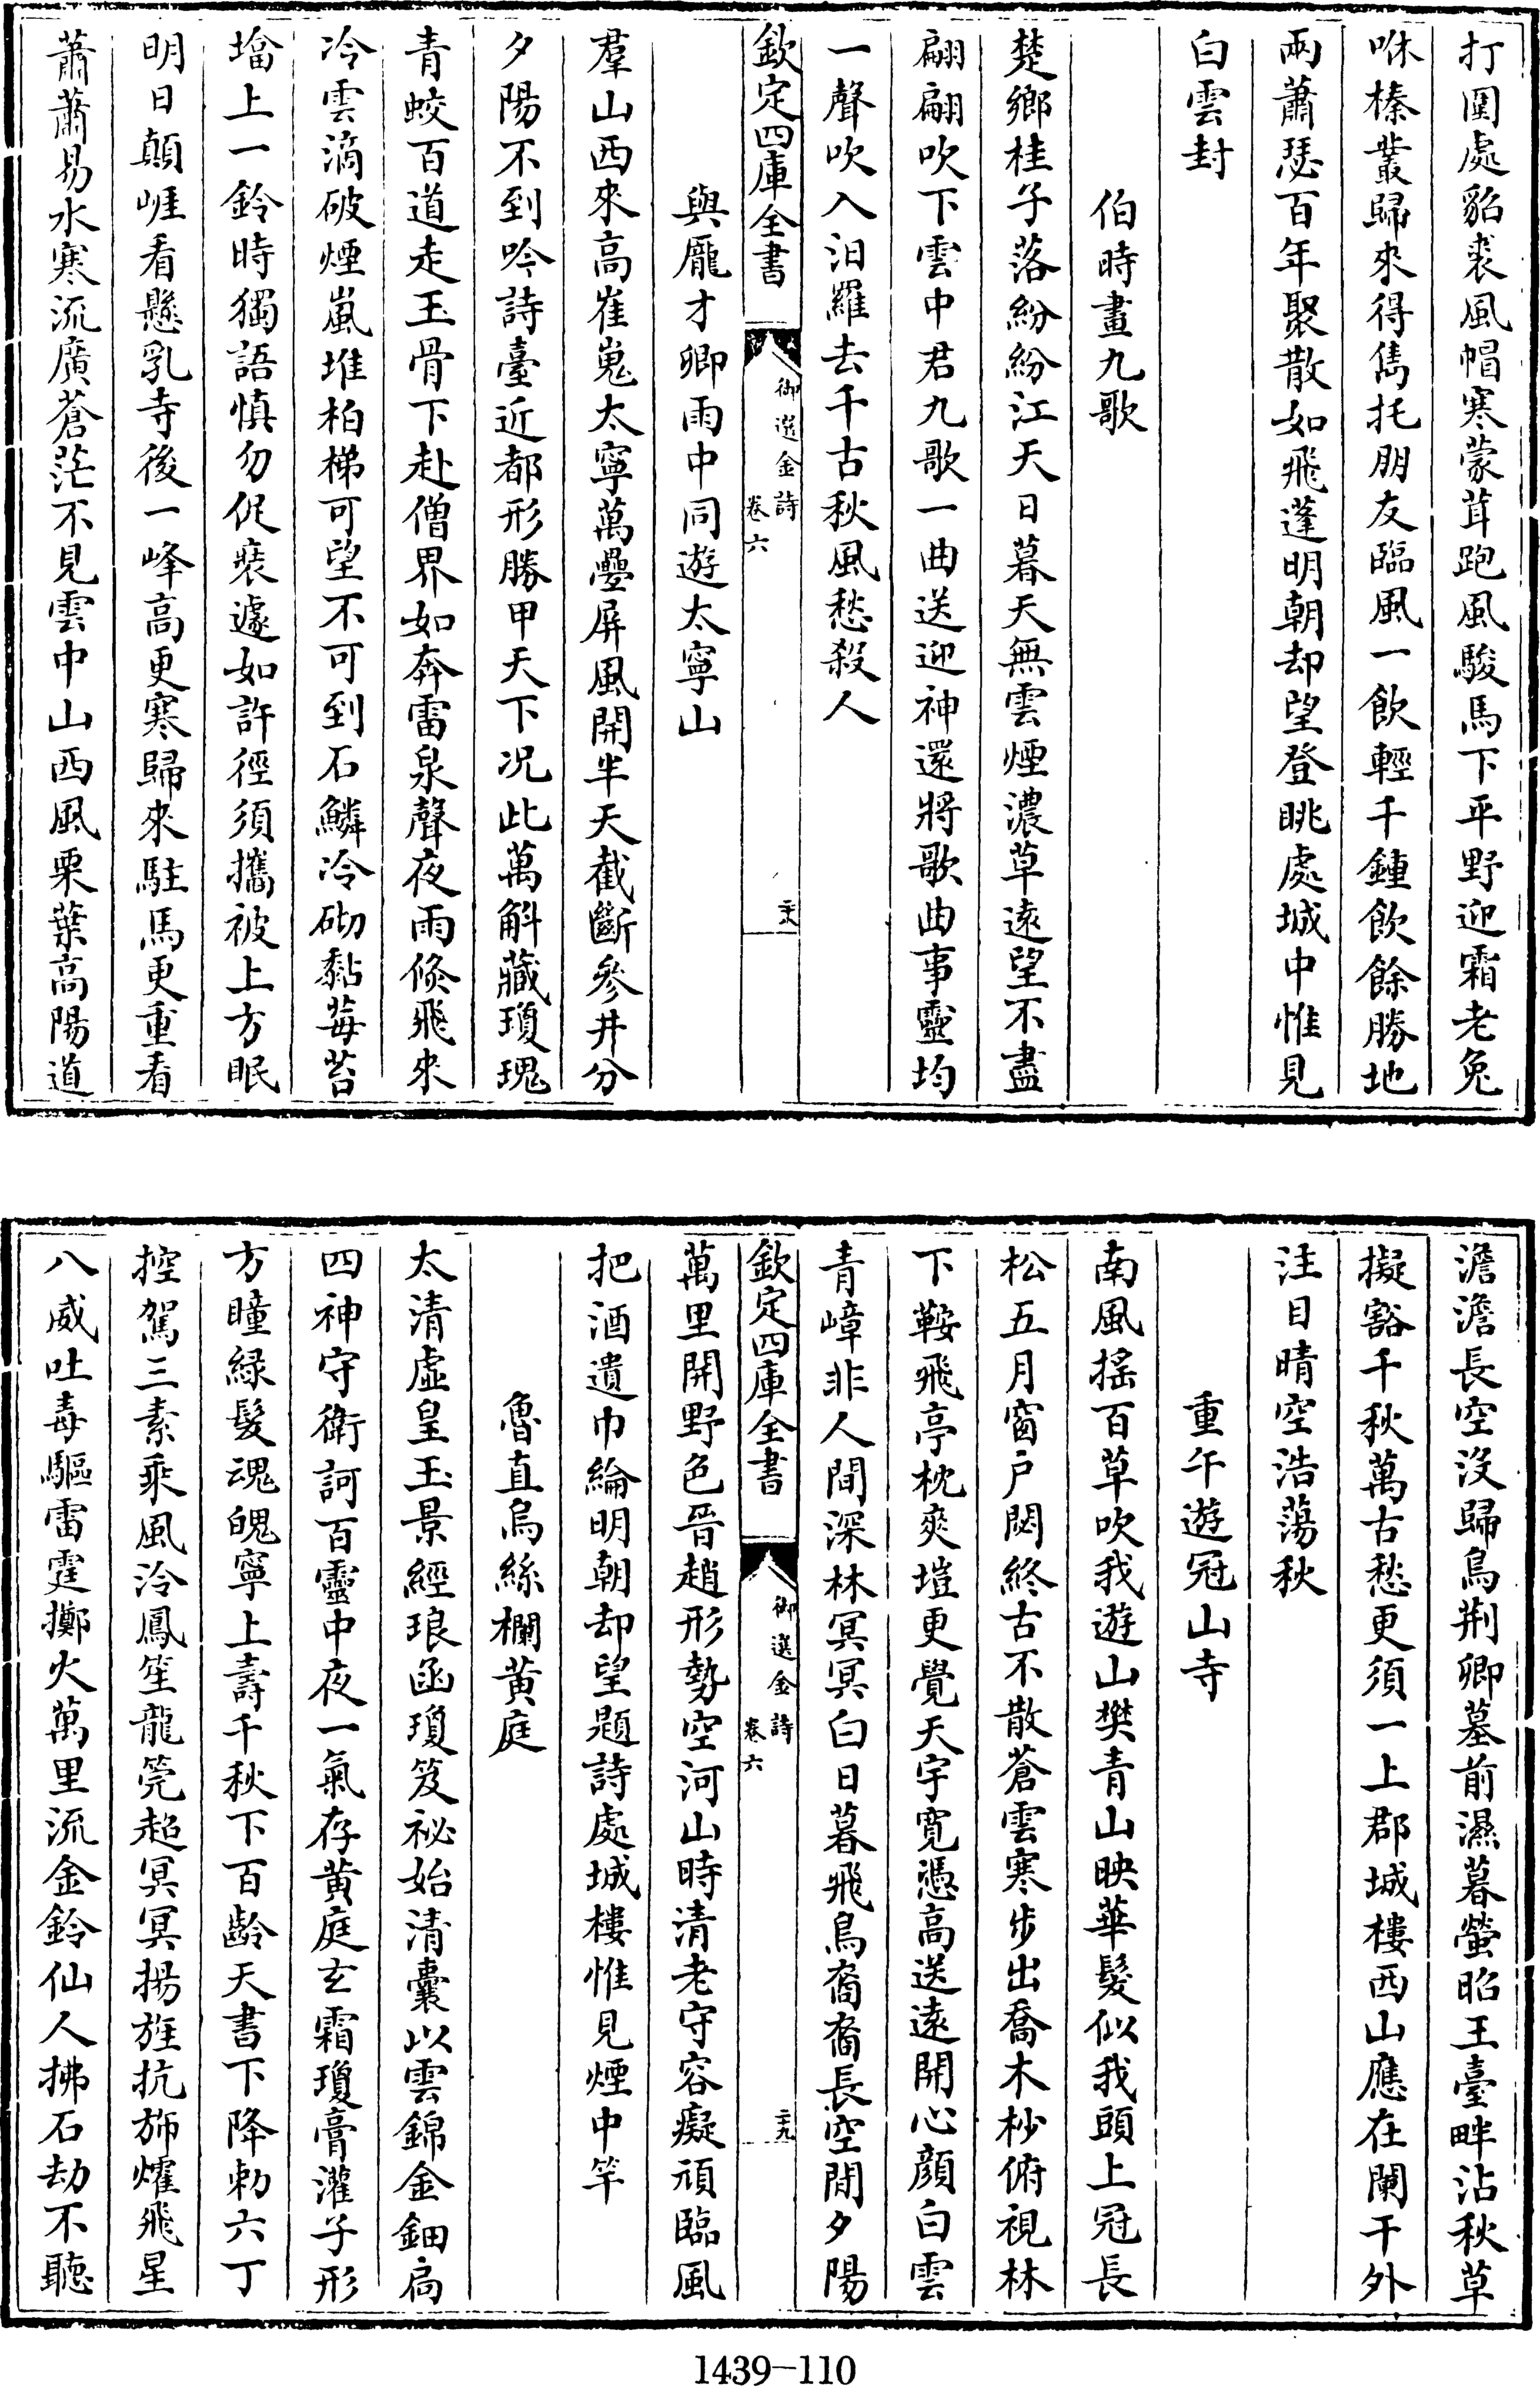 打圍處貂裘風帽寒蒙茸跑風駿馬下平野迎霜老兔
咻榛叢歸來得雋托朋友臨風一飲輕千鍾飲餘勝地
兩蕭瑟百年聚散如飛蓬明朝却望登眺處城中惟見
白雲封
伯時畫九歌
楚鄉桂子落紛紛江天日暮天無雲煙濃草遠望不盡
翩翩吹下雲中君九歌一曲送迎神還將歌曲事靈均
一聲吹入汨羅去千古秋風愁殺人
欽定四庫全書
御選金詩
卷六
二十八
與龐才卿雨中同遊太寧山
羣山西來高崔嵬太寧萬疊屏風開半天截斷參井分
夕陽不到吟詩臺近都形勝甲天下况此萬斛藏瓊瑰
青蛟百道走玉骨下赴僧界如奔雷泉聲夜雨倏飛來
冷雲滴破煙嵐堆柏梯可望不可到石鱗冷砌黏莓苔
壋上一鈴時獨語慎勿促裝遽如許徑須攜被上方眠
明日顛崕看懸乳寺後一峰高更寒歸來駐馬更重看
蕭蕭易水寒流廣蒼茫不見雲中山西風栗葉高陽道
澹澹長空没歸鳥荆卿墓前濕暮螢昭王臺畔沾秋草
擬豁千秋萬古愁更須一上郡城樓西山應在闌干外
注目晴空浩蕩秋
重午遊冠山寺
南風搖百草吹我遊山樊青山映華髮似我頭上冠長
松五月窗户閟終古不散蒼雲寒步出喬木杪俯視林
下鞍飛亭枕爽塏更覺天宇寬憑高送遠開心顔白雲
青嶂非人間深林冥冥白日暮飛鳥裔裔長空閒夕陽
欽定四庫全書
御選金詩
卷六
二十九
萬里開野色晉趙形勢空河山時清老守容癡頑臨風
把酒遺巾綸明朝却望題詩處城樓惟見煙中竿
魯直烏絲欄黄庭
太清虚皇玉景經琅函瓊笈祕始清囊以雲錦金鈿扃
四神守衛訶百靈中夜一氣存黄庭玄霜瓊膏灌子形
方瞳緑髮魂魄寧上壽千秋下百齡天書下降勅六丁
控駕三素乘風泠鳳笙龍筦超冥冥揚旌抗斾燿飛星
八威吐毒驅雷霆擲火萬里流金鈴仙人拂石劫不聽
1439-110